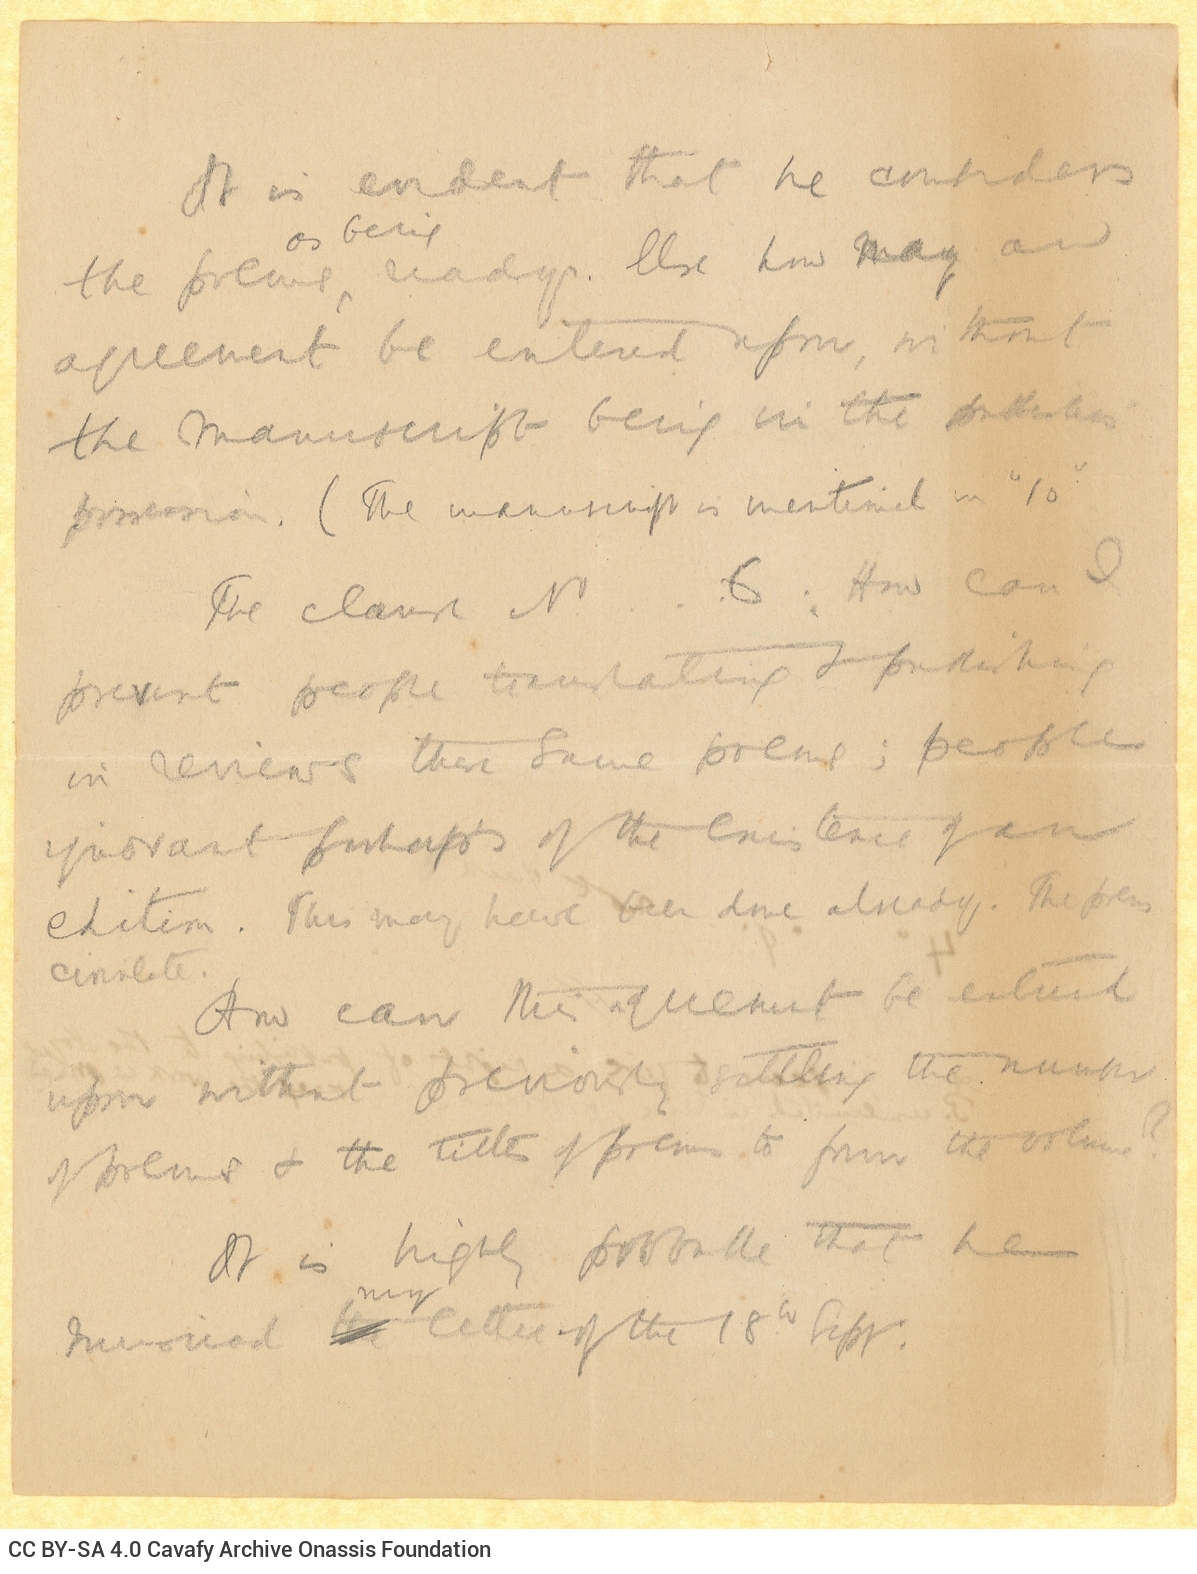 It is evident that he considers
as being
the poems, ready. Else how may an
agreement be entered upon, without
the Manuscript being in the publishers
possession. (The manuscript is mentioned in "10"
The clause No . . . 6 : How can I
prevent people translating & publishing
in reviews these same poems; people
ignorant perhaps of the existence of an
edition. This may have been done already. The poems
circulate.
How can this agreement be entered
upon without previously settling the number
of poems & the titles of poems to form the volume?
It is highly probable that he
my
received the letter of the 18th Sept.
CC BY-SA 4.0 Cavafy Archive Onassis Foundation